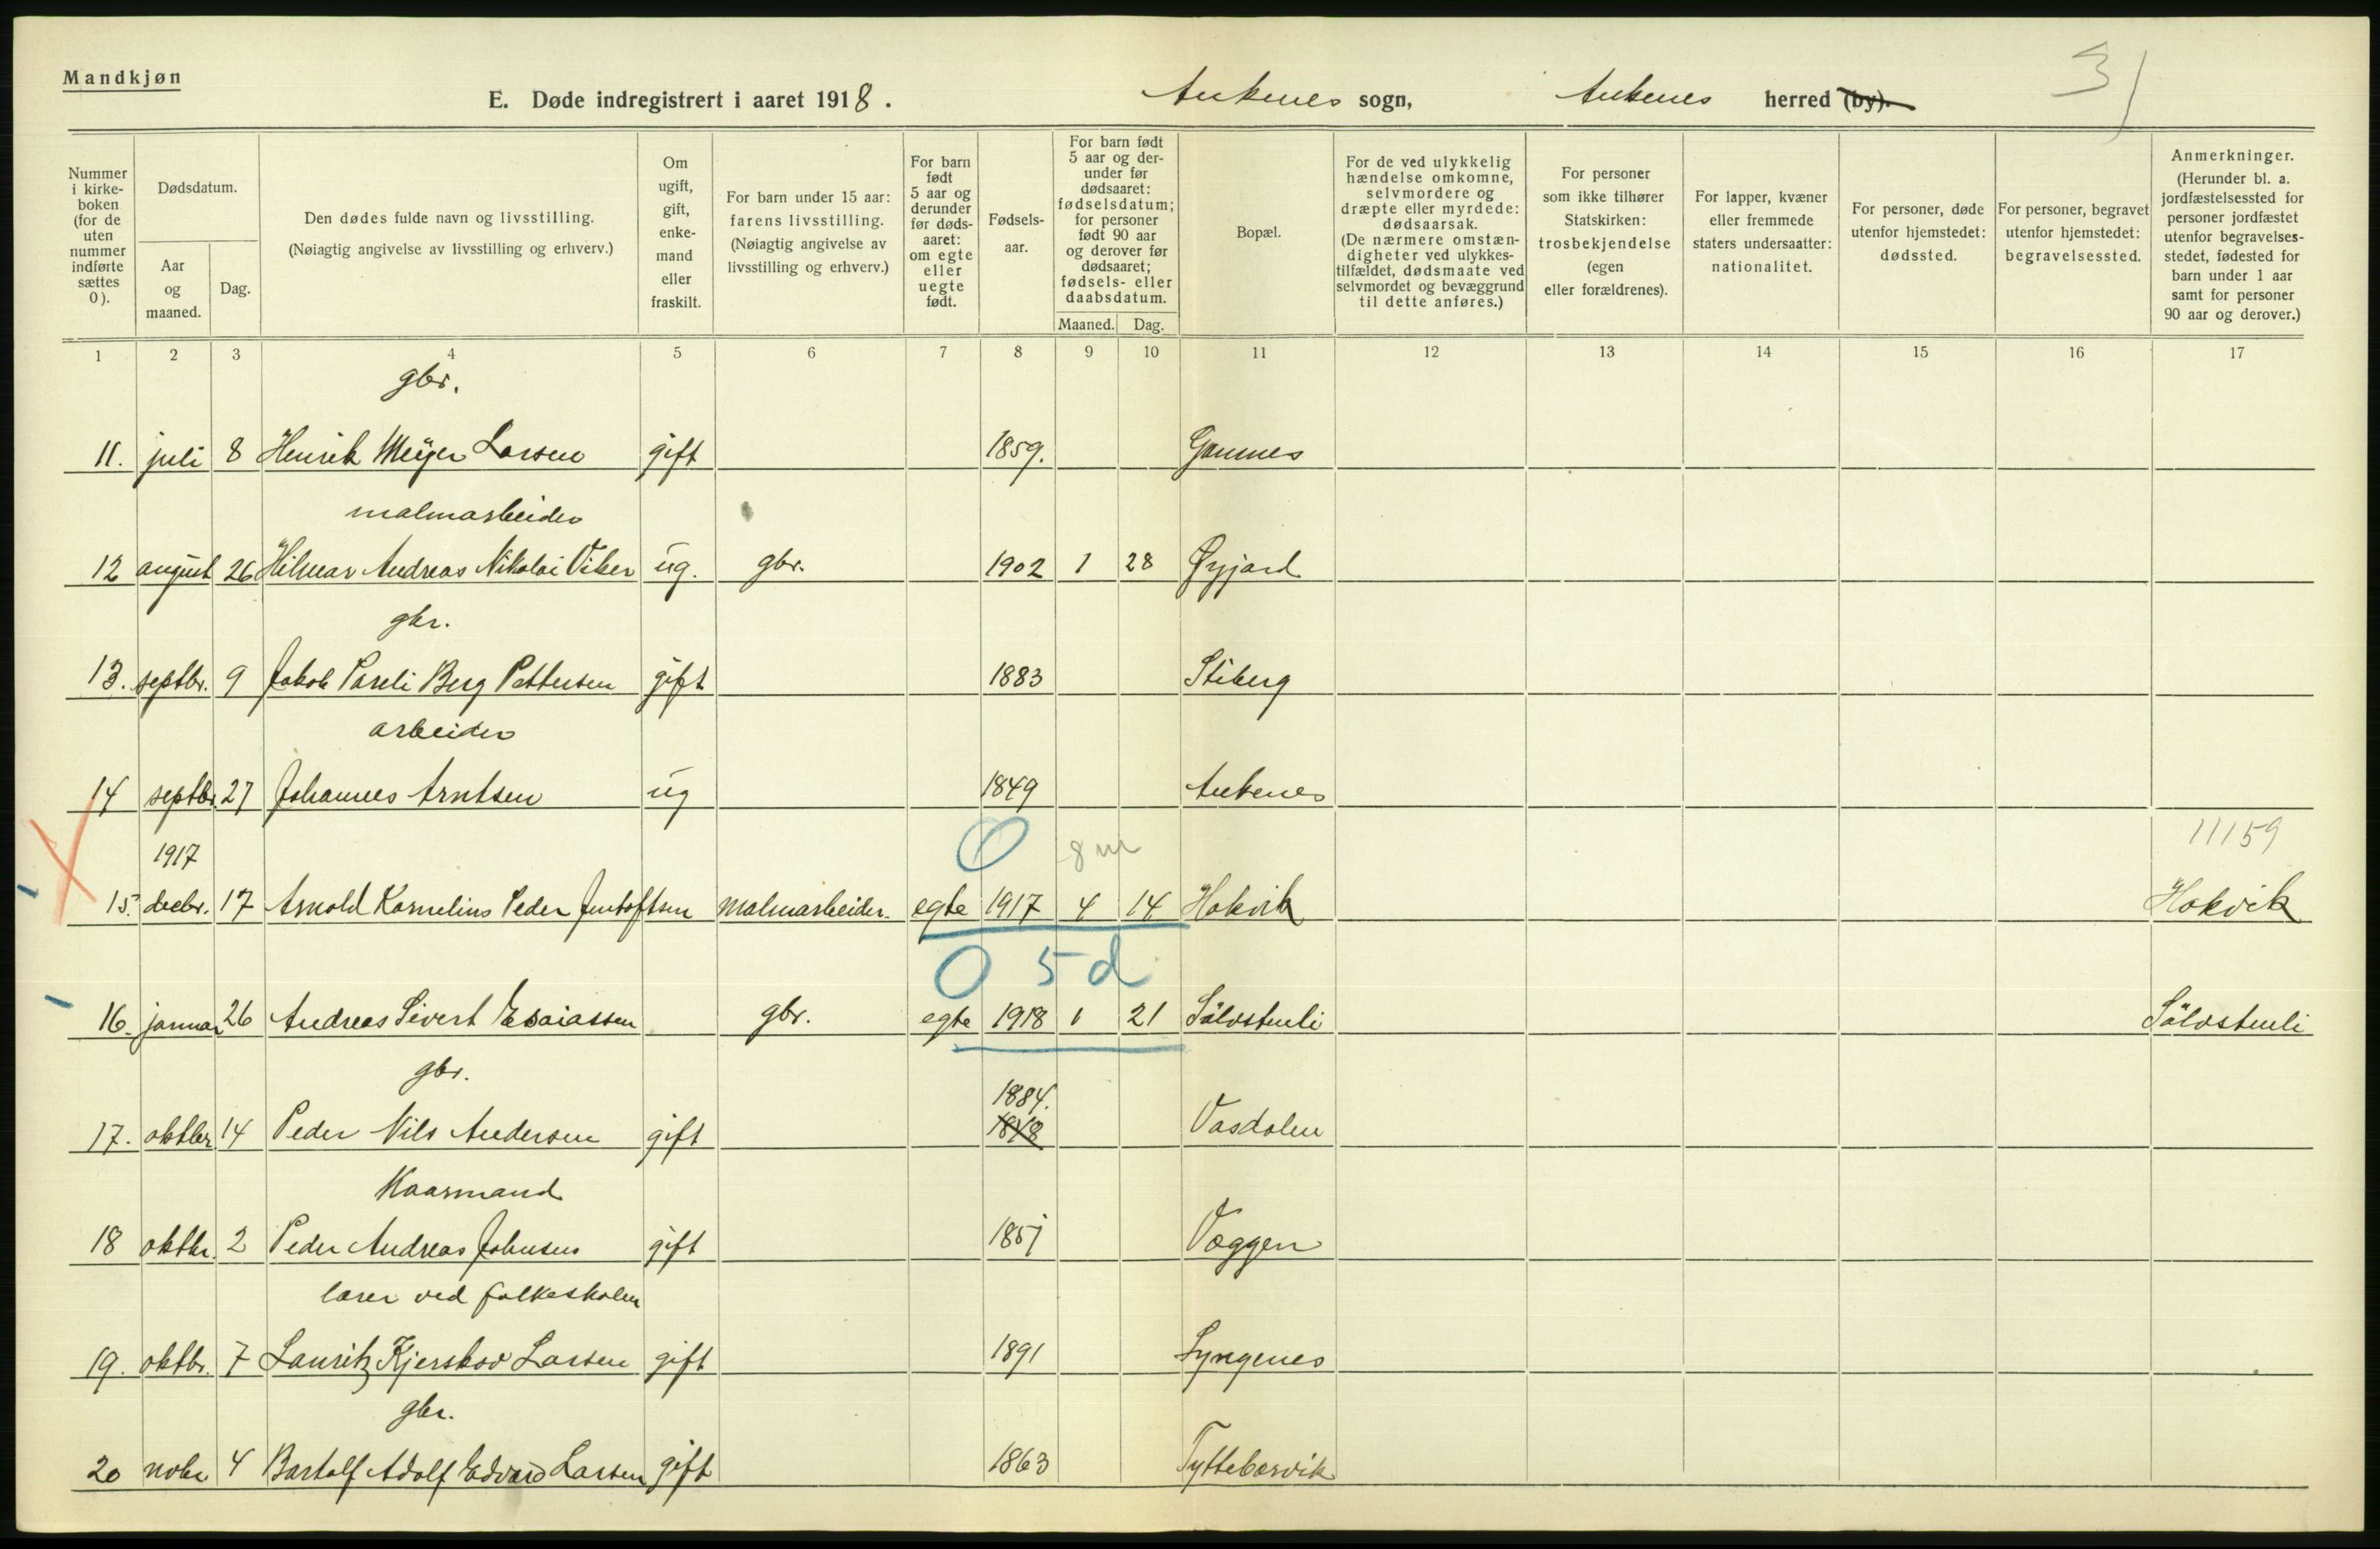 Mandkjøn
E. Døde indregistrert i aaret 1918. Ankenes sogn, Ankenes herred (by).
3
Nummer i kirke-boken (for de uten nummer indførte sættes 0).
Dødsdatum.
Aar og maaned.
Dag.
Den dødes fulde navn og livsstilling. (Nøiagtig angivelse av livsstilling og erhverv.)
Om ugift, gift, enke-mand eller fraskilt.
For barn under 15 aar: farens livsstilling. (Nøiagtig angivelse av livsstilling og erhverv.)
For barn født 5 aar og derunder før døds-aaret: om egte eller uegte født.
Fødsels-aar.
For barn født 5 aar og der-under før dødsaaret: fødselsdatum; for personer født 90 aar og derover før dødsaaret; fødsels- eller daabsdatum.
Maaned. Dag.
Bopæl.
For de ved ulykkelig hændelse omkomne, selvmordere og dræpte eller myrdede: dødsaarsak. (De nærmere omstæn-digheter ved ulykkes-tilfældet, dødsmaate ved selvmordet og bevæggrund til dette anføres.)
For personer som ikke tilhører Statskirken: trosbekjendelse (egen eller forældrenes).
For lapper, kvæner eller fremmede staters undersaatter: nationalitet.
For personer, døde utenfor hjemstedet: dødssted.
For personer, begravet utenfor hjemstedet: begravelsessted.
Anmerkninger. (Herunder bl. a. jordfæstelsessted for personer jordfæstet utenfor begravelses-stedet, fødested for barn under 1 aar samt for personer 90 aar og derover.)
1 2 3 4 5 6 7 8 9 10 11 12 13 14 15 16 17
gbr.
11. juli 8 Henrik Meyer Larsen gift 1859.
malmarbeider
12 august 26 Hilmar Andreas Nikolai Viker ug. gbr. 1902 1 28 Øyjord
gbr.
13. septbr. 9 Jakob Pareli Berg Pettersen gift 1883 Stiberg
arbeider
14 septbr. 27 Johannes Arntsen ug 1849 Ankenes
1917 0 8 m 11159
15. decbr. 17 Arnold Kornelius Peder Jentoftsen malmarbeider. egte 1917 4 14 Hokvik Hokvik
0 5 d
16. januar 26 Andreas Sivert Esaiassen gbr. egte 1918 1 21 Sölvstenli Sölvstenli
gbr. 1884.
17. oktbr 14 Peder Nils Andersen gift Vasdalen
Kaarmand
18 oktbr. 2 Peder Andreas Johnsen gift 1857 Væggen
lærer ved folkeskolen
19. oktbr. 7 Lauritz Kjerskov Larsen gift 1891 Lyngenes
gbr.
20 novbr 4 Bartolf Adolf Edvard Larsen gift 1863 Tyttebærvik